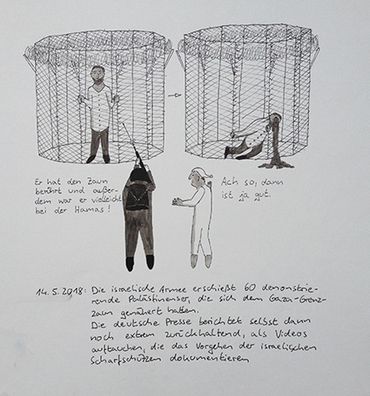 Er hat den Zaun
berührt und außer-
dem war er vielleicht
bei der Hamas!
Ach so, dann
ist ja gut.
14.5.2018: Die israelische Armee erschießt 60 demonstrie-
rende Palästinenser, die sich dem Gaza-Grenz-
zaun genähert hatten.
Die deutsche Presse berichtet selbst dann
noch extrem zurückhaltend, als Videos
auftauchen, die das Vorgehen der israelischen
Scharfschützen dokumentieren